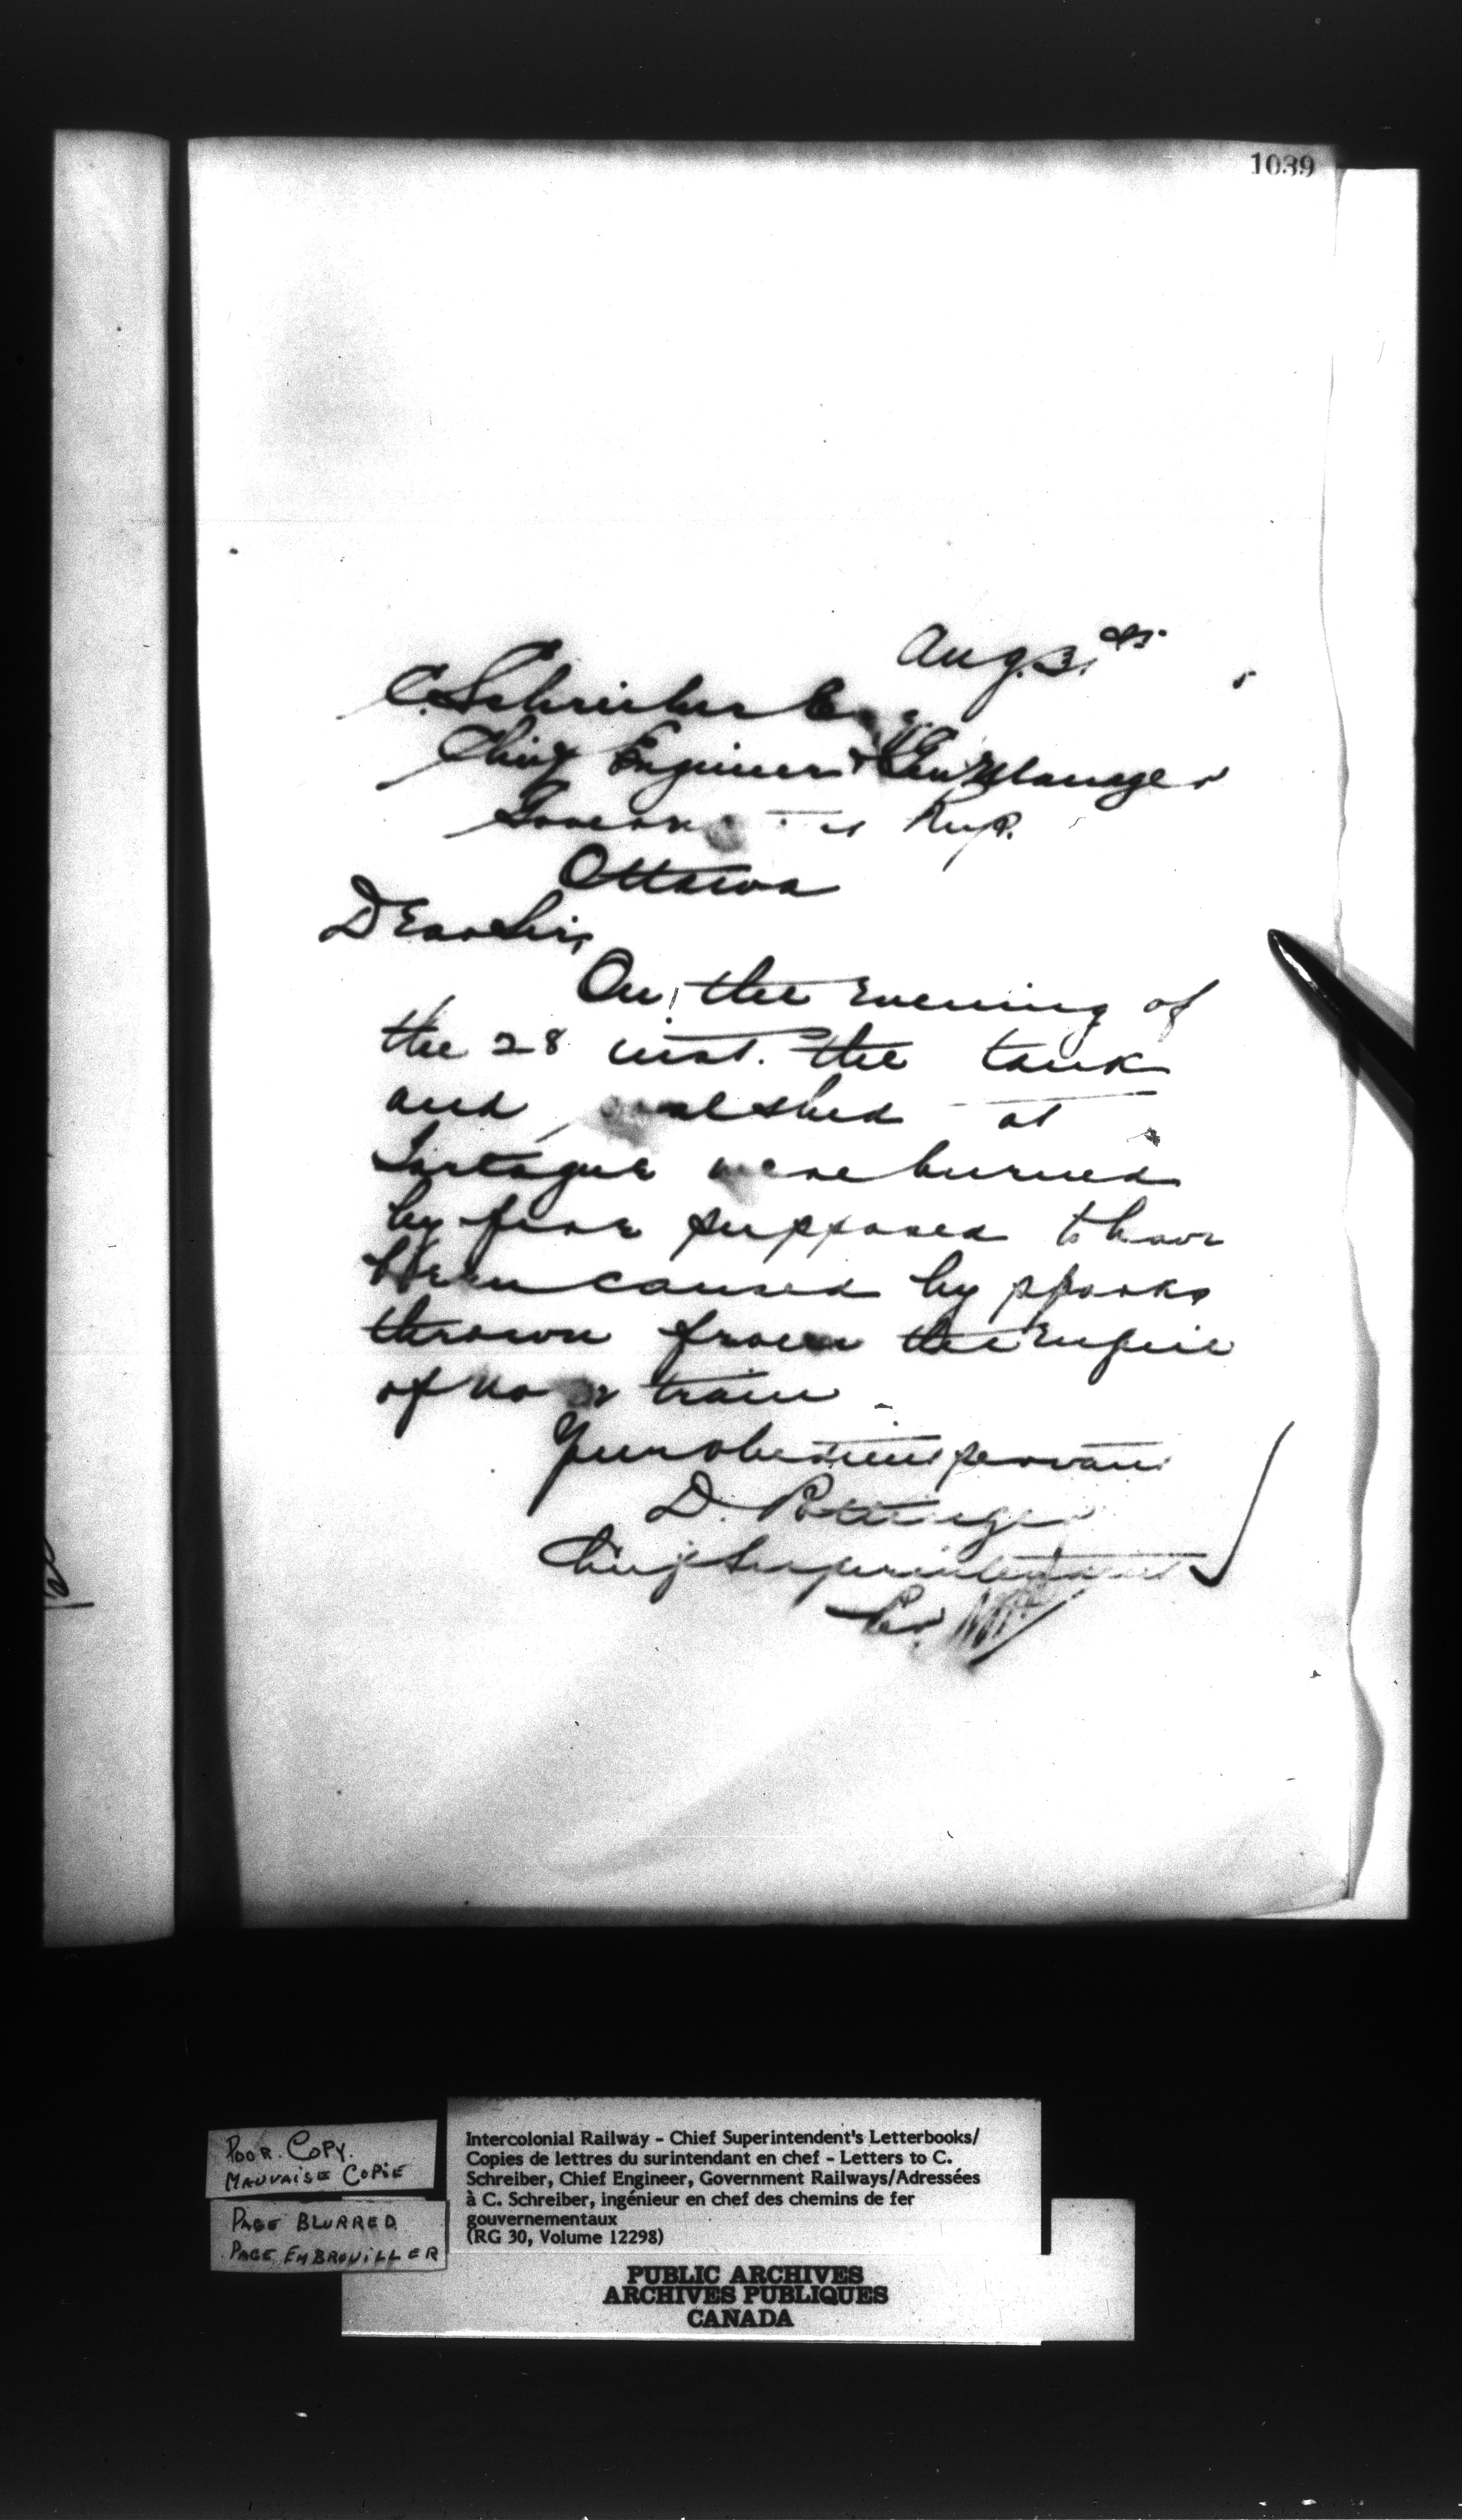 1039
Aug. 31
C. Schreiber
Chief Engineer & Gen Manager
Rys.
Ottawa
Dear Sir,
On the evening of
the 28 inst. the tank
and coalshed at
were burned
by fire supposed to have
been caused by sparks
thrown from the Engine
of No train
Your obedient servant
D. Pottinger
Chief Superintendent
Per
POOR COPY.
MAUVAISE COPIE
PAGE BLURRED
PAGE EMBROUILLER
Intercolonial Railway - Chief Superintendent's Letterbooks/
Copies de lettres du surintendant en chef - Letters to C.
Schreiber, Chief Engineer, Government Railways/Adressées
à C. Schreiber, ingénieur en chef des chemins de fer
gouvernementaux
(RG 30, Volume 12298)
PUBLIC ARCHIVES
ARCHIVES PUBLIQUES
CANADA